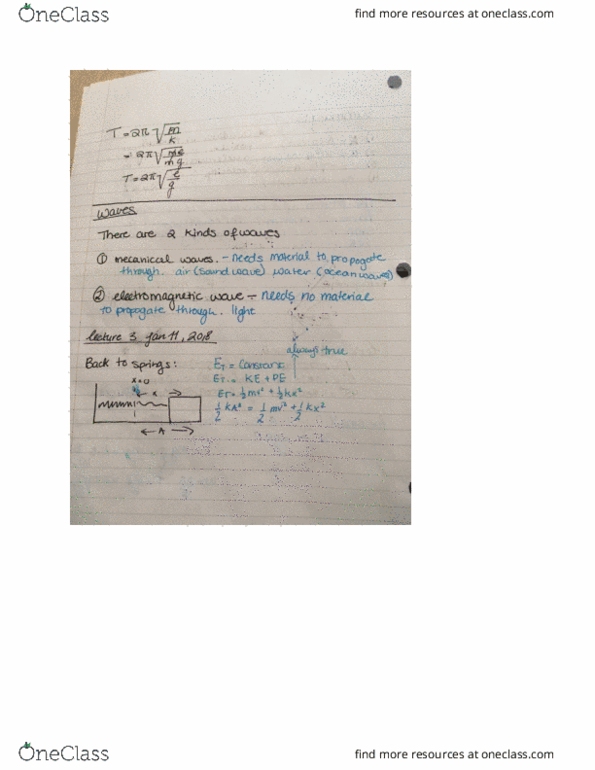 OneClass
find more resources at oneclass.com
T = 2π√m/k
= 2π√ml/mg
T = 2π√l/g
Waves
There are 2 kinds of waves
① mecanical waves. - needs material to propogate
through. air (sound wave) water (ocean waves)
② electromagnetic wave - needs no material
to propogate through. light
lecture 3 Jan 11, 2018
always true
Back to springs: E_T = Constant
x=0 E_T = KE + PE
x E_T = ½mv² + ½kx²
½kA² = ½mv² + ½kx²
A
OneClass
find more resources at oneclass.com